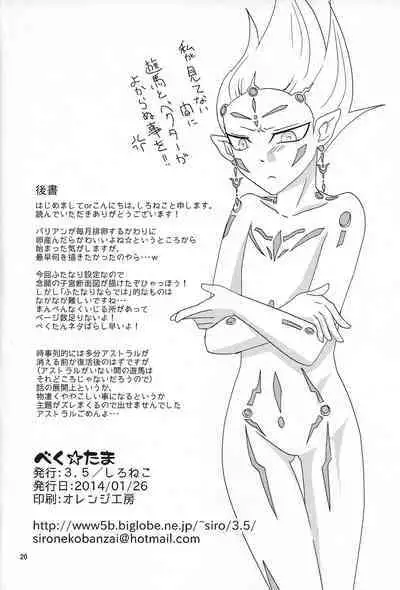 私が見てない
間に
遊馬とベクターが
よからぬ事を!!
後書
はじめましてorこんにちは、しろねこと申します。
読んでいただきありがとうございます！
バリアンが毎月排卵するかわりに
卵産んだらかわいいよね☆というところから
始まった気がしますが、
最早何を描きたかったのやら・・・w
今回ふたなり設定なので
念願の子宮断面図が描けたぞひゃっほう！
しかし「ふたなりならでは」的なものは
なかなか難しいですね・・・
まんべんなくいじる所があって
ページ数足りないよ！
べくたんネタばらし早いよ！
時事列的には多分アストラルが
消える前か復活後のはずですが
(アストラルがいない間の遊馬は
それどころじゃないだろうので)
話の展開上というか、
物凄くややこしい事になるというか
主題がズレまくるので出せませんでした
アストラルごめんよ・・・
べく☆たま
発行:3,5/しろねこ
発行日:2014/01/26
印刷:オレンジ工房
http://www5b.biglobe.ne.jp/~siro/3.5/
sironekobanzai@hotmail.com
20